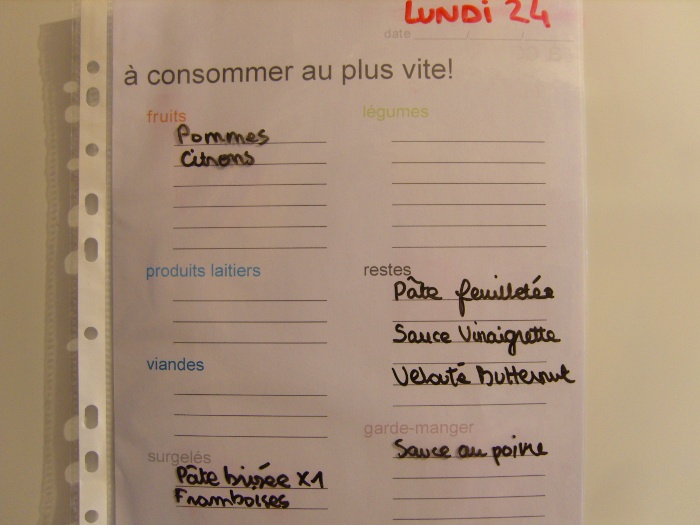 LUNDi 24
date
à consommer au plus vite!
fruits
Pommes
Citrons
légumes
produits laitiers
restes
Pâte feuilletée
Sauce Vinaigrette
Velouté Butternut
viandes
surgelés
Pâte brisée x1
Framboises
garde-manger
Sauce au poivre